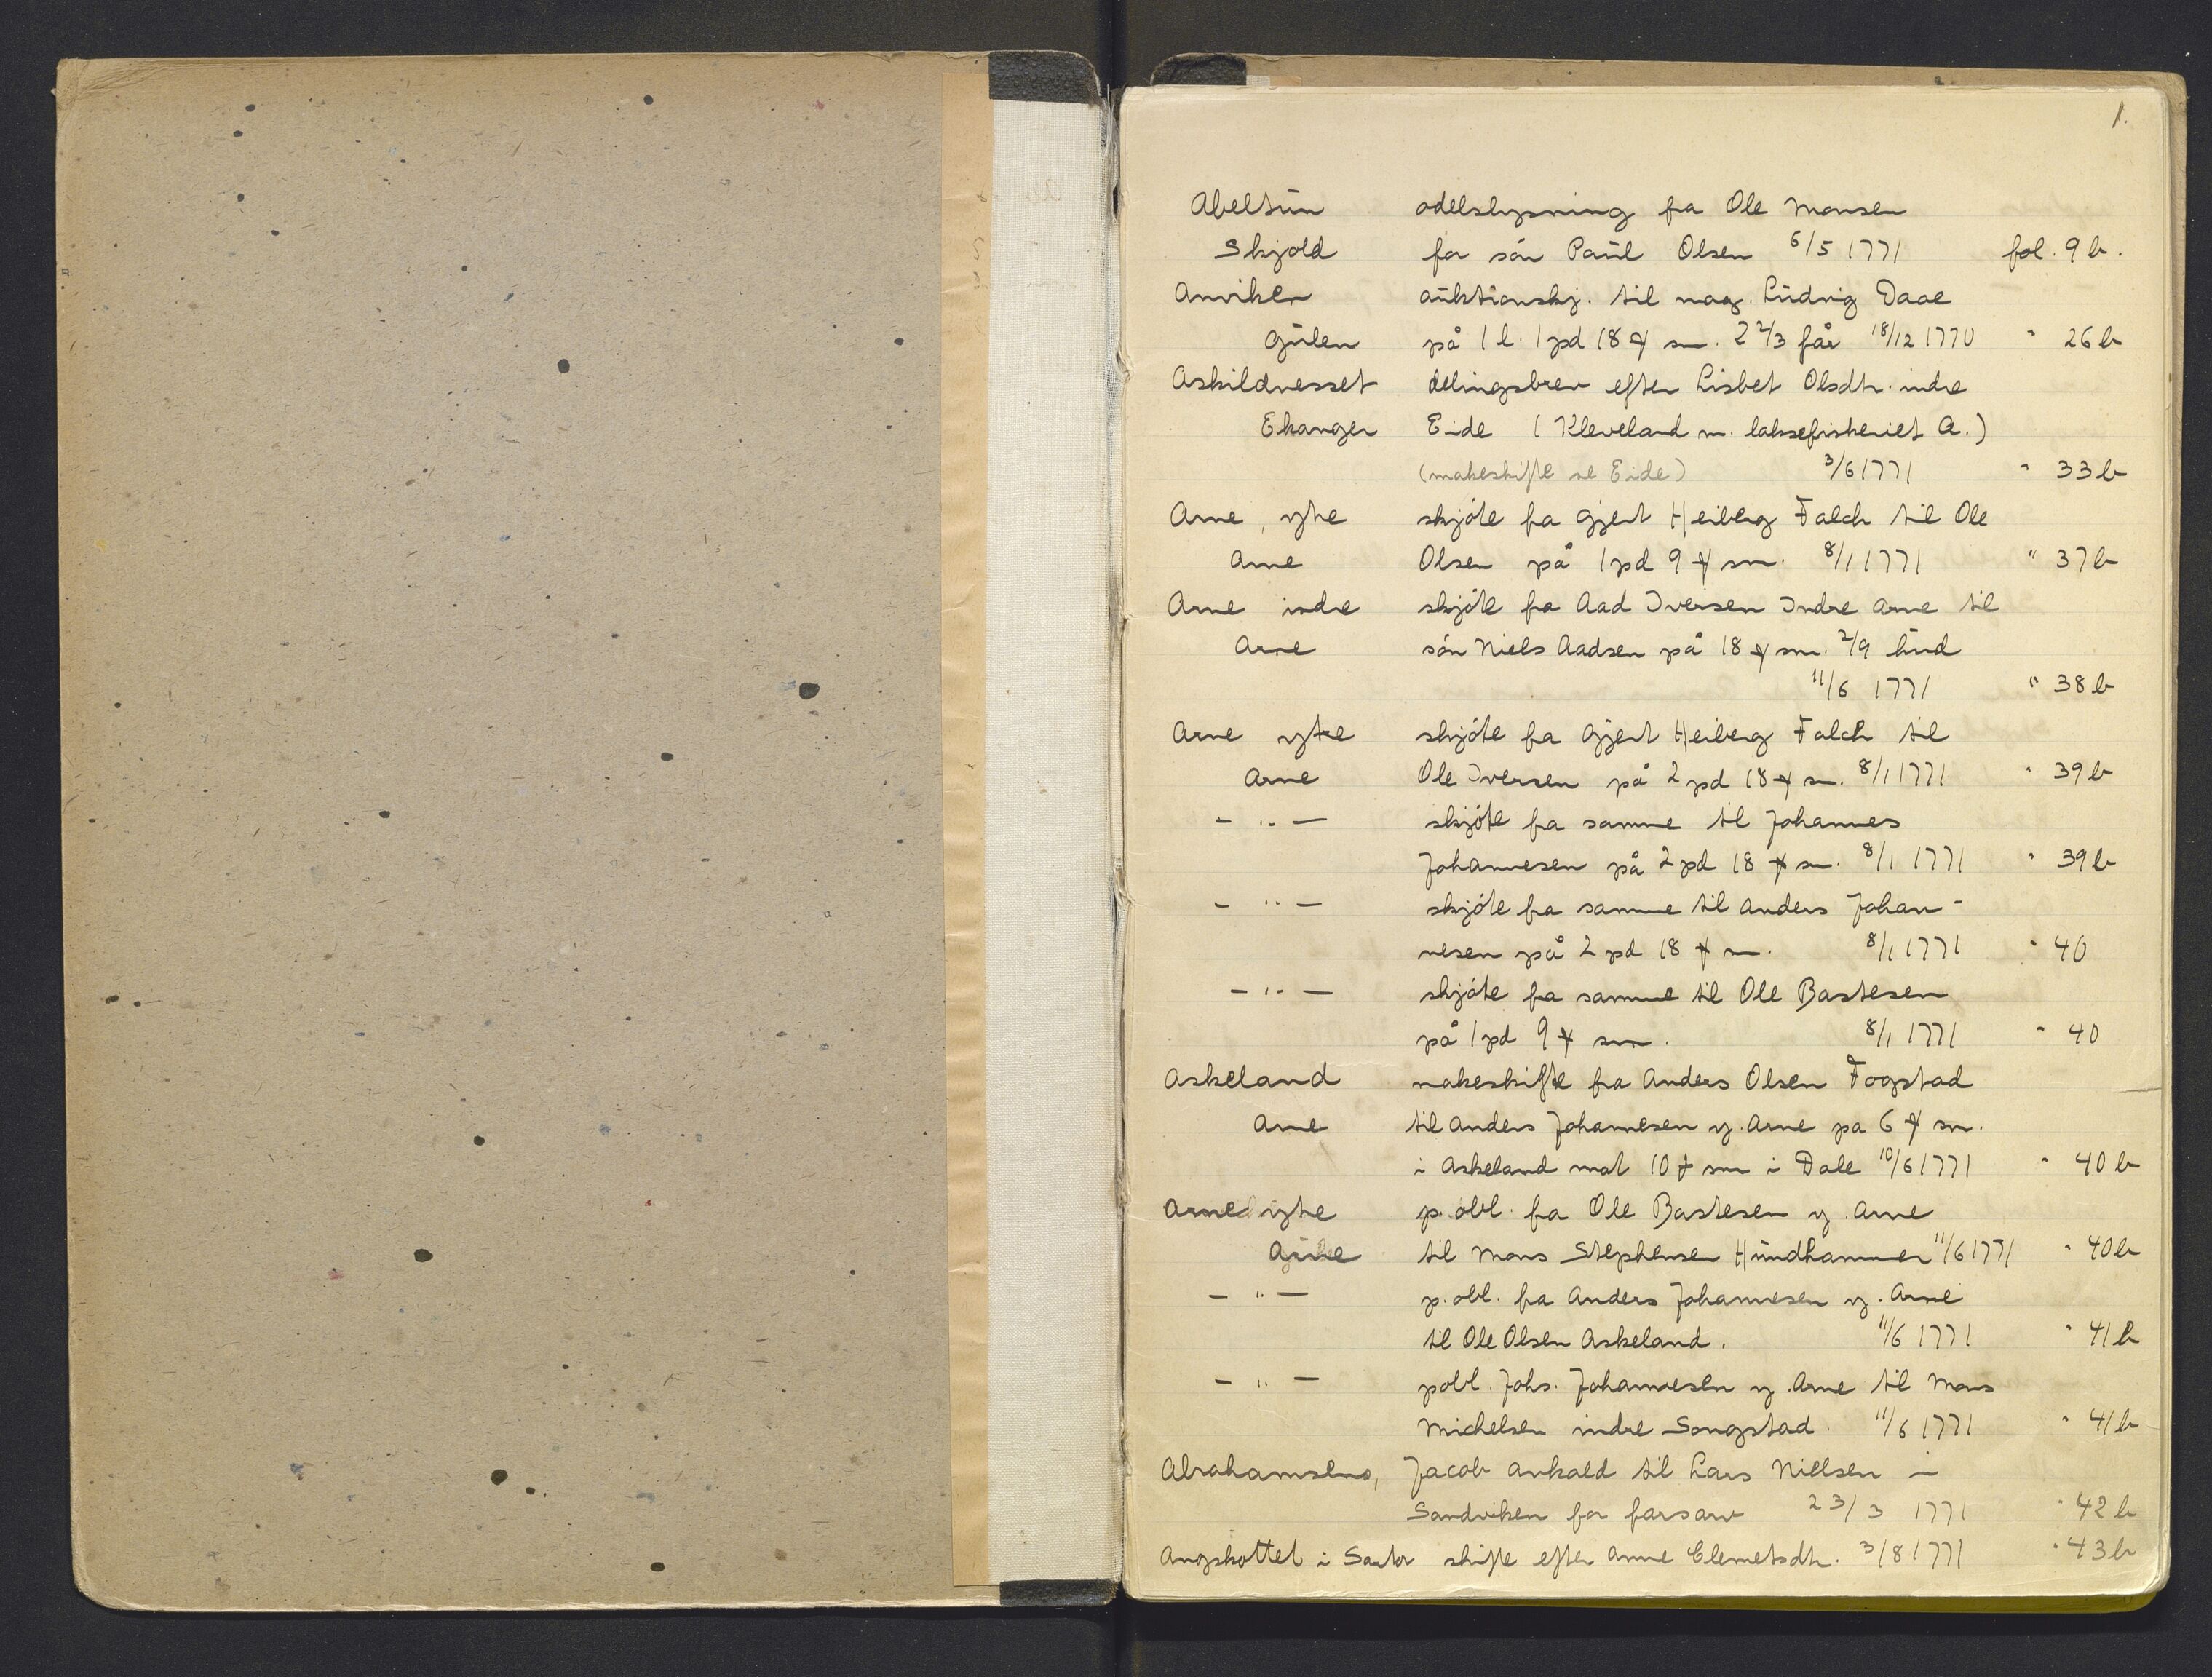 1.
Abeltün odelslysning fra Ole Monsen
Skjold for sön Paül Olsen 6/5 1771 fol. 9 b.
Anviken aüktionskj. til mag. Lüdvig Daae
Gülen på 1 l. 1 pd 18 ℔ sm. 2 2/3 får 18/12 1770 " 26 b
Askildnesset delingsbrev efter Lisbet Olsdtr. indre
Ekanger Eide (Kleveland m. laksefiskeriet A.)
(makeskifte se Eide) 3/6 1771 " 33 b
Arne, ytre skjöte fra Gjert Heiberg Falch til Ole
Arne Olsen på 1 pd 9 ℔ sm. 8/1 1771 " 37 b
Arne indre skjöte fra Aad Iversen Indre Arne til
Arne sön Niels Aadsen på 18 ℔ sm. 2/9 hüd
11/6 1771 " 38 b
Arne ytre skjöte fra Gjert Heiberg Falch til
Arne Ole Iversen på 2 pd 18 ℔ sm. 8/1 1771 " 39 b
- " - skjöte fra samme til Johannes
Johannesen på 2 pd 18 ℔ sm. 8/1 1771 " 39 b
- " - skjöte fra samme til Anders Johan-
nesen på 2 pd 18 ℔ sm. 8/1 1771 " 40
- " - skjöte fra samme til Ole Bastesen
på 1 pd 9 ℔ sm. 8/1 1771 " 40
Askeland makeskifte fra Anders Olsen Fogstad
Arne til Anders Johannesen y. Arne pa 6 ℔ sm.
i Askeland mot 10 ℔ sm i Dale 10/6 1771 " 40 b
Arne ytre p. obl. fra Ole Bastesen y. Arne
til Mons Stephensen Hündhammer 11/6 1771 " 40 b
- " - p. obl. fra Anders Johannesen y. Arne
til Ole Olsen Askeland. 11/6 1771 " 41 b
- " - pobl. Johs. Johannesen y. Arne til Mons
Michelsen indre Songstad. 11/6 1771 " 41 b
Abrahamsens, Jacob avkald til Lars Nielsen -
Sandviken for farsarv 23/3 1771 " 42 b
Angskottet i Sartor skifte efter Anne Clemetsdtr. 3/8 1771 " 43 b